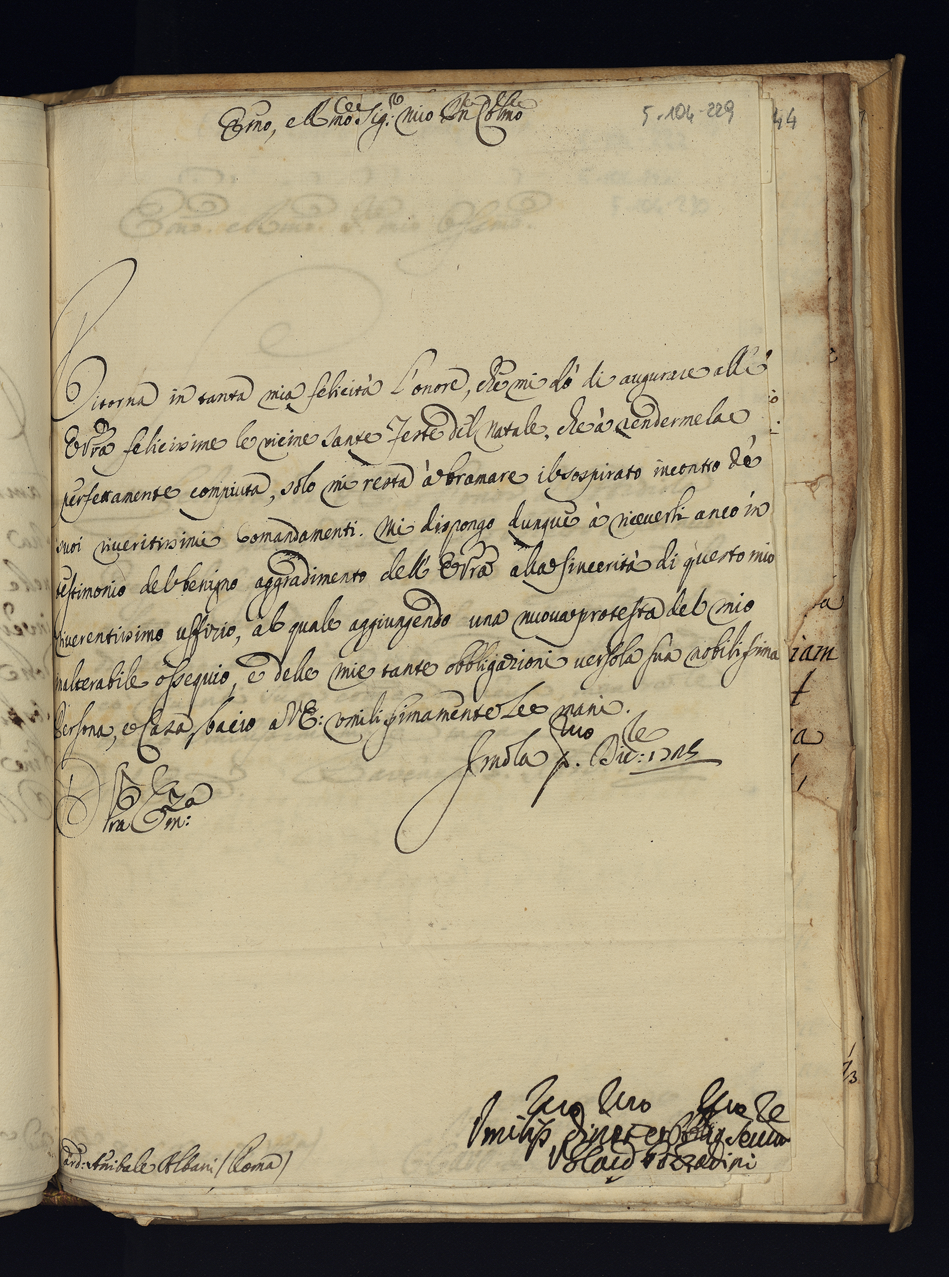 Emo, e Rmo Sig.r mio Pne Colmo
5-104-229
44
Ritorna in tanta mia felicità l'onore, che mi dò di augurare all'
E Vra felicissime le vicine Sante Feste del Natale, che à rendermela
perfettamente compiuta, solo mi resta à bramare il sospirato incontro de
suoi riveritissimi Comandamenti. Mi dispongo dunque à riceverli anco in
testimonio del benigno aggradimento dell' E Vra alla sincerità di questo mio
riverentissimo uffizio, al quale aggiungendo una nuova protesta del mio
inalterabile ossequio, e delle mie tante obbligazioni verso la sua nobilissima
Persona, e Casa, bacio a V E: umilissimamente le mani.
Imola Dic: 1715
Vra Em:
Card: Anibale Albani (Roma)
Umiliss Serv
Gozzadini